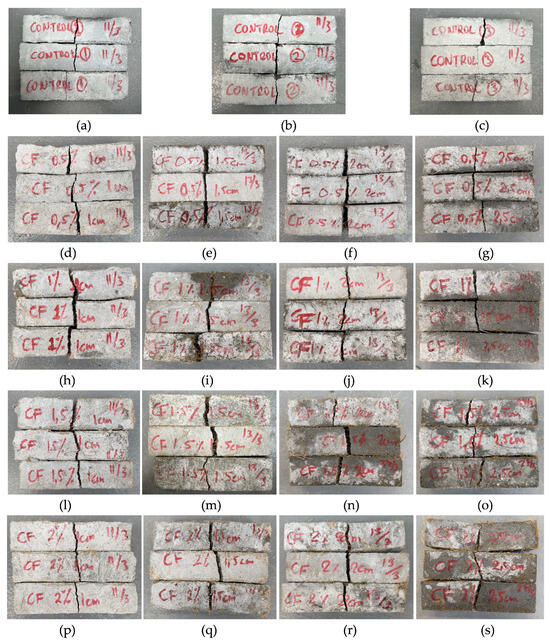 CONTROL ① 11/3
CONTROL ① 11/3
CONTROL ① 11/3
(a)
CONTROL ② 11/3
CONTROL ② 11/3
CONTROL ② 11/3
(b)
CONTROL ③ 11/3
CONTROL ③ 11/3
CONTROL ③ 11/3
(c)
CF 0.5% 1cm 11/3
0,5% 1cm 11/3
CF 0,5% 1cm 11/3
(d)
CF 0,5% 1.5cm 13/3
CF 0,5% 1.5cm 13/3
CF 0,5% 1.5cm 13/3
(e)
CF 0.5% 2cm 13/3
CF 0.5% 2cm 13/3
CF 0.5% 2cm 13/3
(f)
CF 0,5% 2.5cm
CF 0,5% 2,5cm
CF 0,5% 2,5cm
(g)
CF 1% 1cm 11/3
CF 1% 1cm 11/3
CF 1% 1cm 11/3
(h)
CF 1% 1.5cm 13/3
CF 1% 1.5cm 13/3
CF 1% 1.5cm 13/3
(i)
CF 1% 2cm 13/3
CF 1% 2cm 13/3
CF 1% 2cm 13/3
(j)
CF 1% 2.5cm
CF 2.5cm
CF 2,5cm
(k)
CF 1,5% 1cm 11/3
CF 1,5% 1cm 11/3
CF 1,5% 1cm 11/3
(l)
CF 1.5% 1.5cm 13/3
CF 1.5% 1.5cm 13/3
1.5% 1.5cm 13/3
(m)
CF 2cm 13/3
CF 2cm
CF 1.5% 2cm
(n)
CF 1,5% 2.5cm
CF 1,5% 2,5cm
CF 1,5% 2,5cm
(o)
CF 2% 1cm 11/3
CF 2% 1cm 11/3
CF 2% 1cm 11/3
(p)
CF 2% 1.5cm 13/3
CF 2% 1,5cm 13/3
CF 2% 1.5cm 13/3
(q)
CF 2% 2cm 13/3
CF 2% 2cm 13/3
CF 2% 2cm 13/3
(r)
CF
CF 2% 2.5cm
CF 2% 2.5cm
(s)